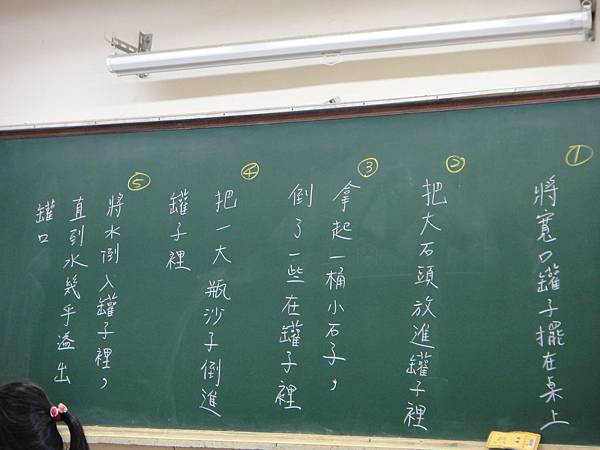 ①
將寬口罐子擺在桌上
②
把大石頭放進罐子裡
③
拿起一桶小石子，
倒了一些在罐子裡
④
把一大瓶沙子倒進
罐子裡
⑤
將水倒入罐子裡，
直到水幾乎溢出
罐口